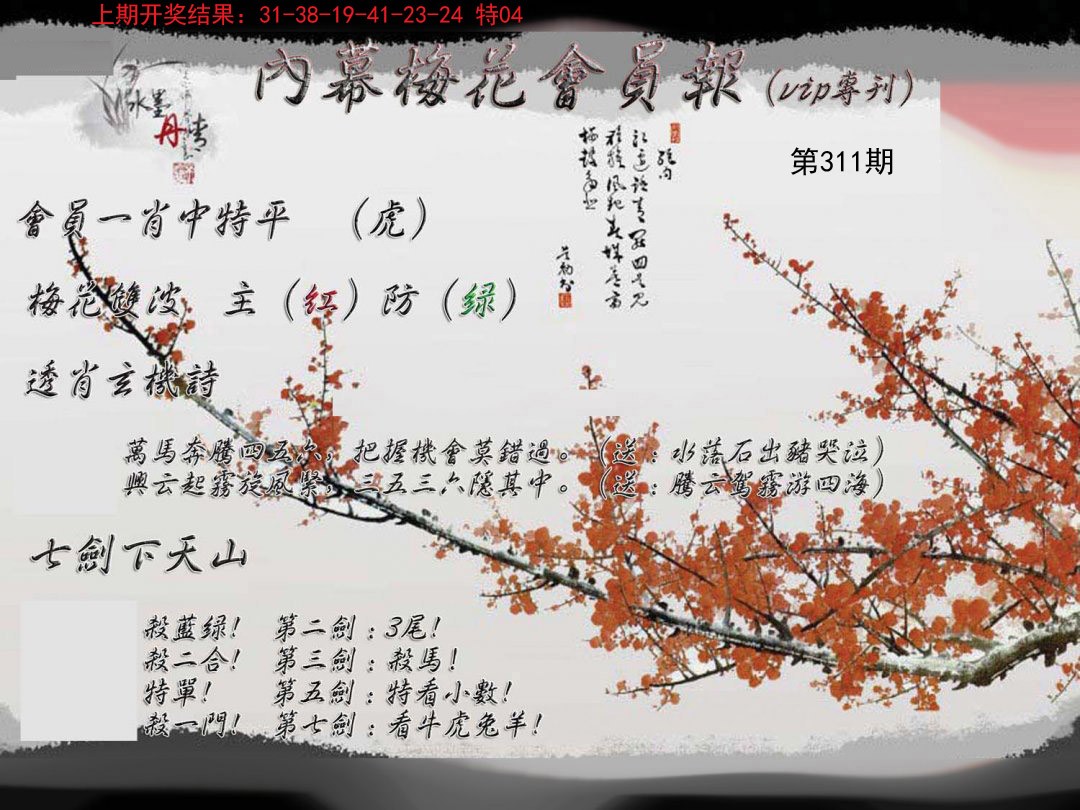 上期开奖结果：31-38-19-41-23-24 特04
內幕梅花會員報（vip專刊）
水墨
丹青
第311期
會員一肖中特平 （虎）
梅花雙波 主（红）防（绿）
透肖玄機詩
萬馬奔騰四五六，把握機會莫錯過。（送：水落石出豬哭泣）
興云起霧旋風緊，三五三六隱其中。（送：騰云駕霧游四海）
七劍下天山
殺藍绿！ 第二劍：3尾！
殺二合！ 第三劍：殺馬！
特單！ 第五劍：特看小數！
殺一門！ 第七劍：看牛虎兔羊！